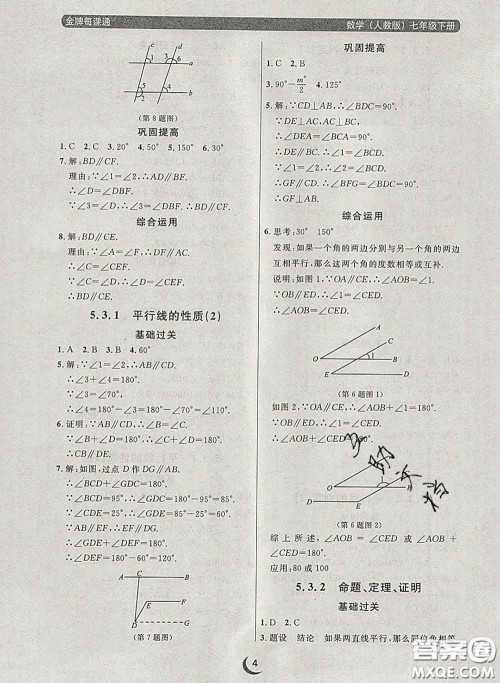 金牌每课通
数学(人教版)七年级下册
c d
1 3
a
5 2
b
4 6
(第8题图)
巩固提高
1. C 2. C 3. 30° 4. 50° 5. 150° 6. A
7. 解:BD∥CF.
理由:∵∠1=∠2,∴AD∥BF.
∴∠D=∠DBF.
∵∠3=∠D,∴∠3=∠DBF.∴BD∥CF.
综合运用
8. BD∥CE.
理由:∵AD∥CF,
∴∠D=∠CEF.
∵∠C=∠D,∴∠C=∠CEF.
∴BD∥CE.
5.3.1 平行线的性质(2)
基础过关
1. A 2. B 3. B 4. 60°
5. 解:∵∠1=∠2,∴AB∥CD.
∴∠3+∠4=180°.
∵∠3=108°,
∴∠4=180°-∠3=180°-108°=72°.
6. 证明:∵AB∥CD,∴∠B=∠C.
∵∠B+∠D=180°,∴∠C+∠D=180°.
∴CB∥DE.
7. 解:如图,过点D作DG∥AB.
∴∠GDC=∠BCD=85°.
∴∠GDE=135°-85°=50°.
∵∠E=130°,
∴∠GDE+∠E=50°+130°=180°.
∴DG∥EF.
∴AB∥EF.
A C B
E F
D G
(第7题图)
巩固提高
1. C 2. C 3. 90°-m°/2 4. 125°
5. 解:∵CD⊥AB,∴∠BDC=90°.
∵DE⊥AC,BC⊥AC,
∴∠DEA=∠BCA=90°.
∴DE∥BC.∴∠1=∠DCB.
∵∠1=∠2,∴∠DCB=∠2.
∴GF∥CD.∴∠BFG=∠BDC=90°.
∴GF⊥AB.
综合运用
6. 思考:30° 150°
发现:如果一个角的两边分别与另一个角的两边
互相平行,那么这两个角的度数相等或互补.
说明:如图1,∵OA∥CE,∴∠AOB=∠1.
∵OB∥ED,∴∠1=∠CED.
∴∠AOB=∠CED.
A C
1
O B
E D
(第6题图1)
如图2,∵OA∥CE,∴∠AOB+∠1=180°.
∵OB∥ED,∴∠1=∠CED.
∴∠AOB+∠CED=180°.
A
E D
O B
(第6题图2)
综上所述,∠AOB=∠CED或∠AOB+
∠CED=180°.
应用:80或100
5.3.2 命题、定理、证明
基础过关
1. D 2. C
3. 题设 结论 如果两直线平行,那么同位角相等
4
答案圈
MXQE.COM